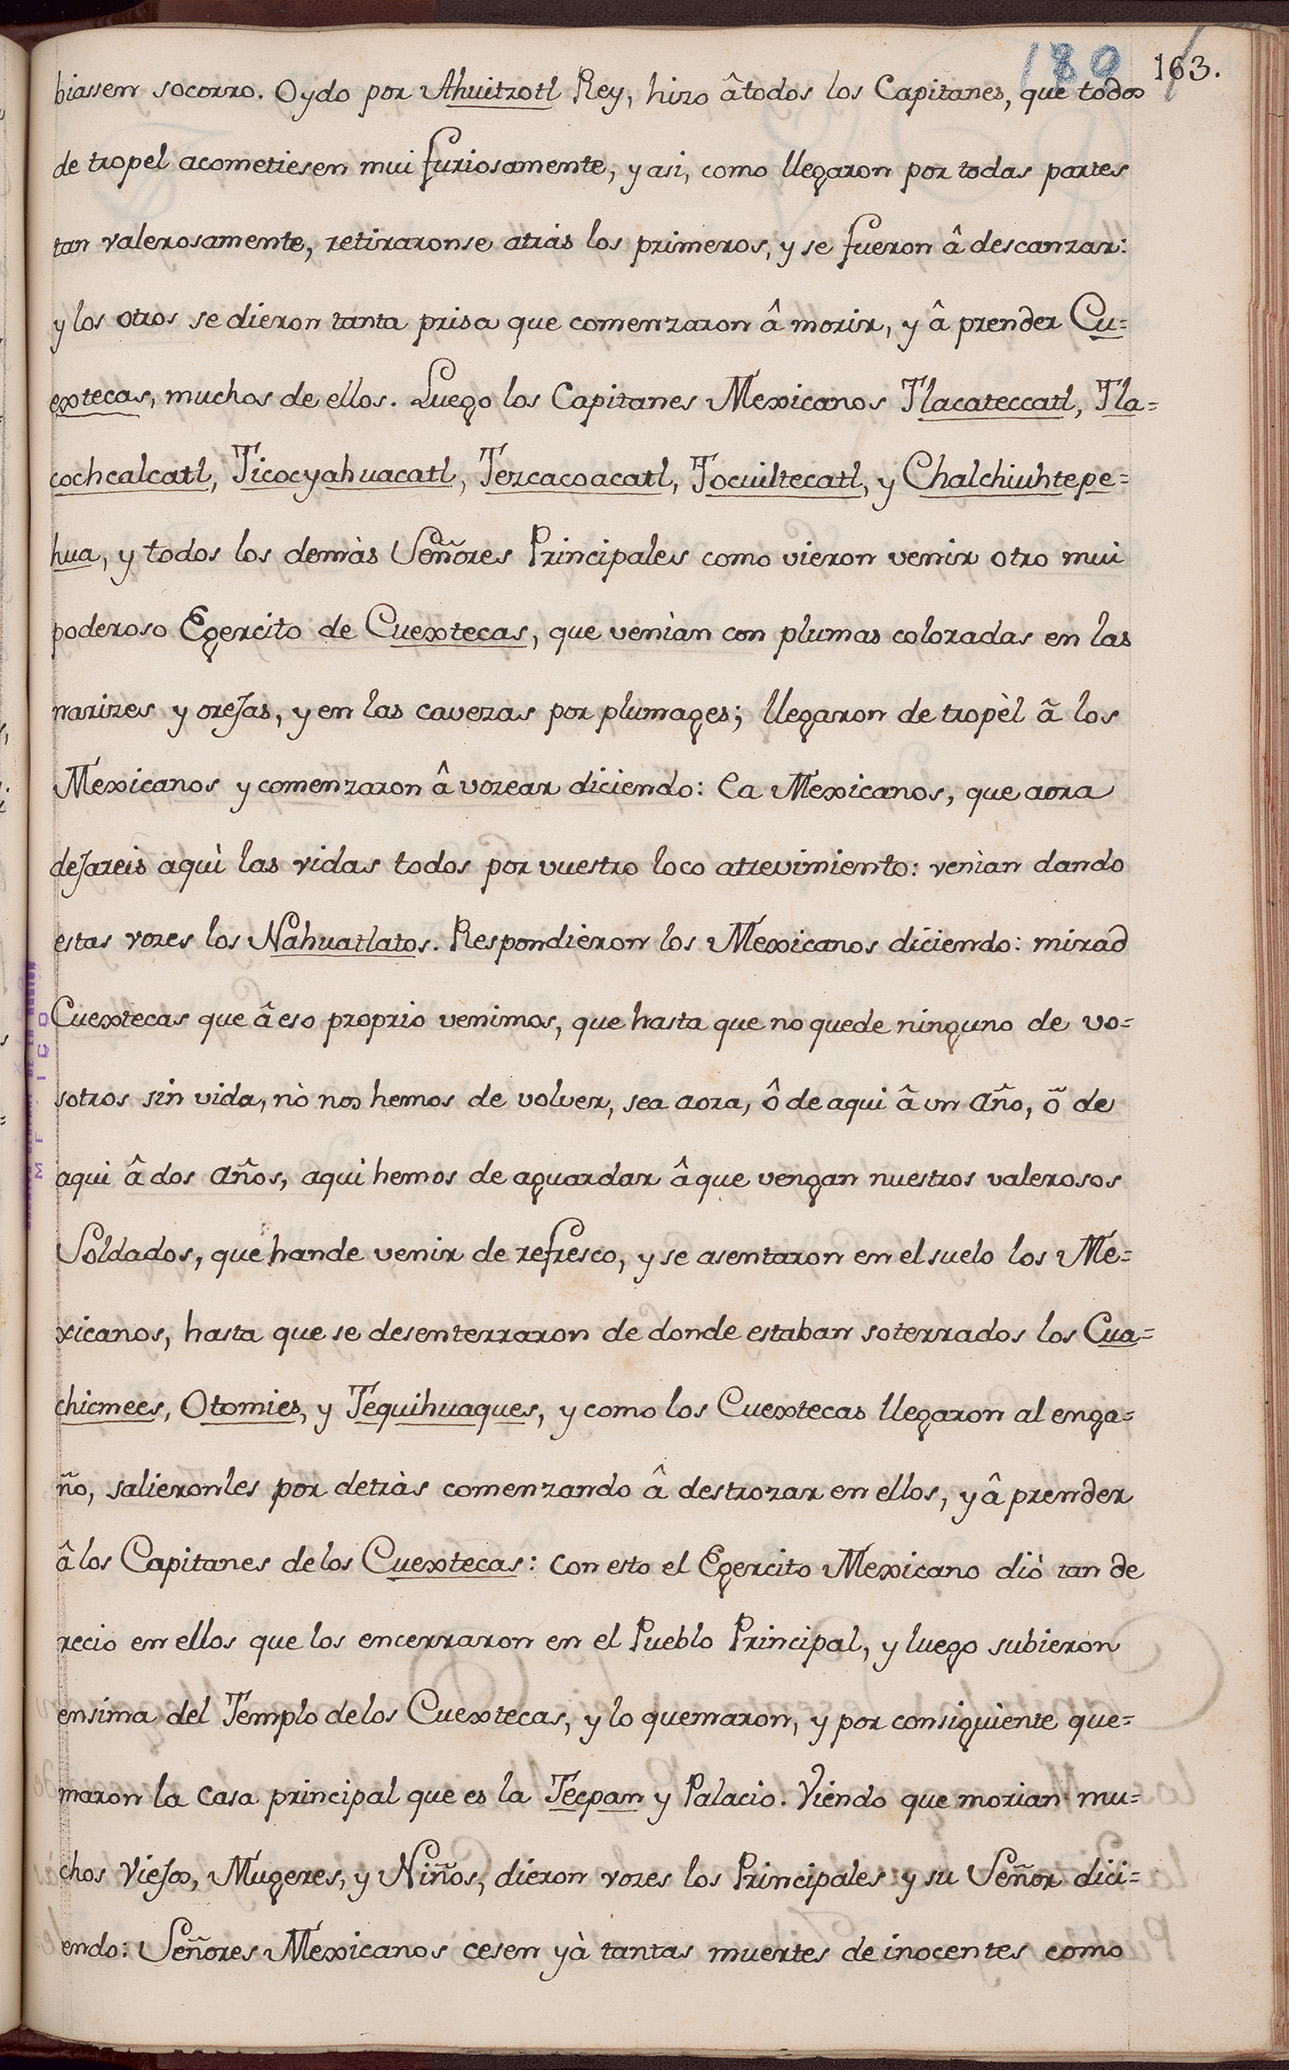 180 163.
biassen socorro. Oydo por Ahuitzotl Rey, hizo âtodos los Capitanes, que todos
de tropel acometiesen mui furiosamente, y asi, como llegaron por todas partes
tan valerosamente, retiraronse atràs los primeros, y se fueron â descanzar:
y los otros se dieron tanta prisa que comenzaron â morir, y â prender Cu=
extecas, muchos de ellos. Luego los Capitanes Mexicanos Tlacateccatl, Tla=
cochcalcatl, Ticocyahuacatl, Tezcacoacatl, Tocuiltecatl, y Chalchiuhtepe=
hua, y todos los demàs Señores Principales como vieron venir otro mui
poderoso Egercito de Cuextecas, que venìan con plumas coloradas en las
narizes y orejas, y en las cavezas por plumages; llegaron de tropèl â los
Mexicanos y comenzaron â vozear diciendo: Ea Mexicanos, que aora
dejareis aquì las vidas todos por vuestro loco atrevimiento: venìan dando
estas vozes los Nahuatlatos. Respondieron los Mexicanos diciendo: mirad
Cuextecas que â eso proprio venimos, que hasta que no quede ninguno de vo=
sotros sin vida, nò nos hemos de volver, sea aora, ô de aqui â un año, ô de
aqui â dos años, aqui hemos de aguardar â que vengan nuestros valerosos
Soldados, que hande venir de refresco, y se asentaron en el suelo los Me=
xicanos, hasta que se desenterraron de donde estaban soterrados los Cua=
chicmees, Otomies, y Tequihuaques, y como los Cuextecas llegaron al enga=
ño, salieronles por detràs comenzando â destrozar en ellos, y â prender
â los Capitanes delos Cuextecas: con esto el Egercito Mexicano diò tan de
recio en ellos que los encerraron en el Pueblo Principal, y luego subieron
ensima del Templo delos Cuextecas, y lo quemaron, y por consiguiente que=
maron la casa principal que es la Tecpam y Palacio. Viendo que morian mu=
chos Viejos, Mugeres, y Niños, dieron vozes los Principales y su Señor dici=
endo: Señores Mexicanos cesen yà tantas muertes de inocentes como